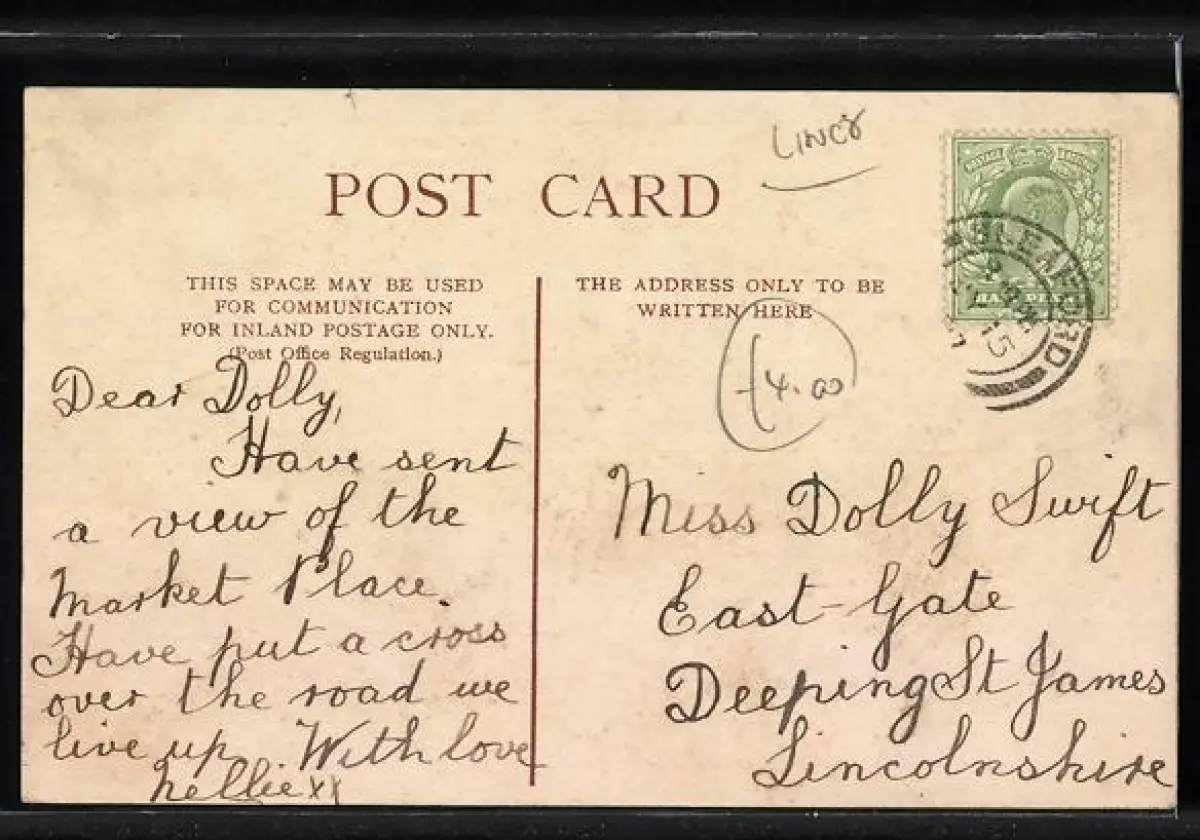 LINCS
POST CARD
THIS SPACE MAY BE USED
FOR COMMUNICATION
FOR INLAND POSTAGE ONLY.
(Post Office Regulation.)
THE ADDRESS ONLY TO BE
WRITTEN HERE
POSTAGE REVENUE
HALFPENNY
SLEAFORD
15
£4.00
Dear Dolly,
Have sent
a view of the
Market Place.
Have put a cross
over the road we
live up. With love
Nellie xx
Miss Dolly Swift
East-Gate
Deeping St James
Lincolnshire